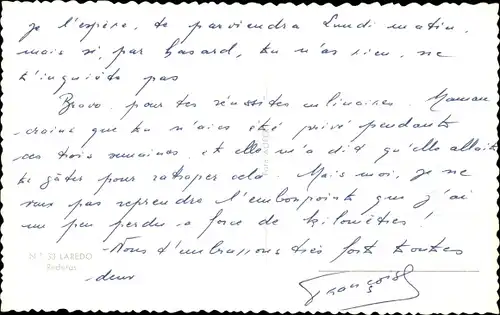 je l'espère, te parviendra Lundi matin,
mais si, par hasard, tu n'as rien, ne
t'inquiète pas
Bravo pour tes réussites culinaires. Maman
craint que tu n'aies été privé pendant
ces trois semaines, et elle m'a dit qu'elle allait
te gâter pour ratraper cela. Mais moi, je ne
veux pas reprendre l'embonpoint que j'ai
un peu perdu à force de kilomètres!
Nous t'embrassons très fort toutes
deux
N.° 33 LAREDO
Françoise